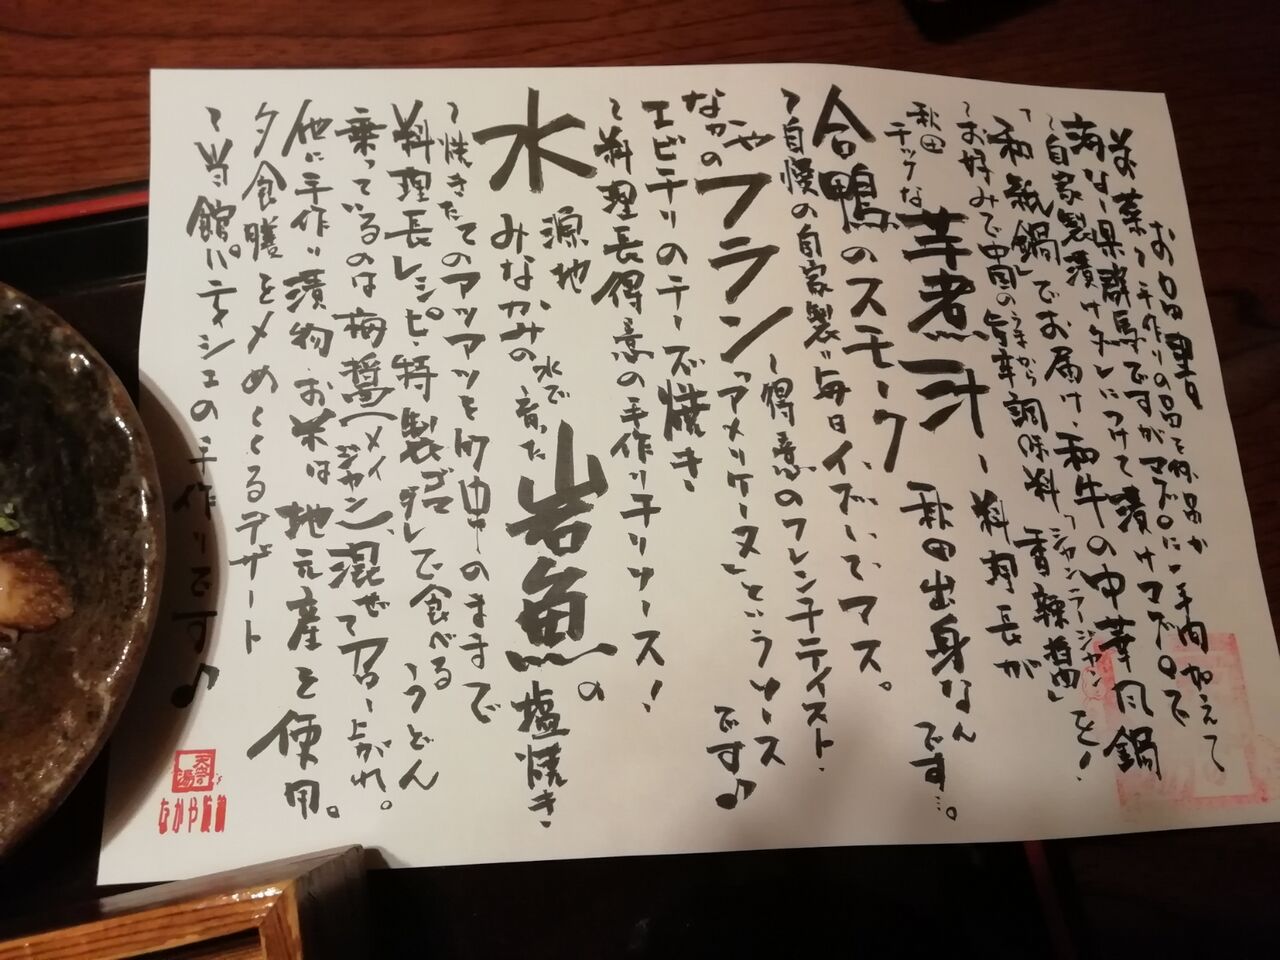 お品書
お菜〜手作りの品を
海なし県群馬ですがマグロに
〜自家製漬けタレにつけて漬けマグロで
「和穀鍋」でお届け、和牛の中華風鍋
〜お好みで中国の旨辛調味料「香辣醤」を！
うまから
ジャンラージャン
秋田
チックな
芋煮汁〜料理長が
秋田出身なん
です…。
合鴨のスモーク
〜自慢の自家製〟毎日イブしてマス。
なかや
のフラン〜得意のフレンチテイスト
「アメリケーヌ」というソース
です♪
エビチリのチーズ焼き
〜料理長得意の手作りチリソース！
水源地、みなかみの水で育った
岩魚の塩焼き
〜焼きたてのアツアツを
料理長レシピ・特製ゴマダレで食べるうどん
乗っているのは梅醤（メイジャン）、混ぜて召し上がれ。
他に手作り漬物・お米は地元産を使用。
夕食膳を〆めくくるデザート
〜当館パティシエの手作りです♪
なかや旅館